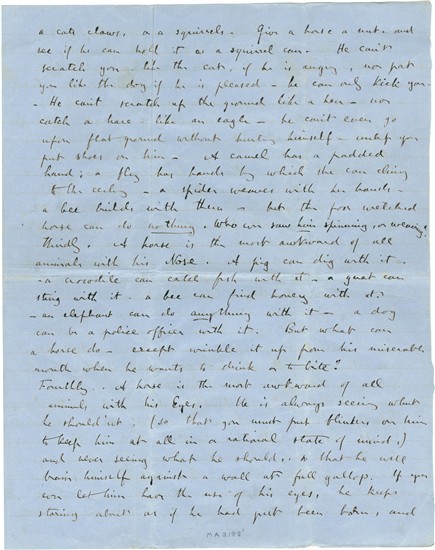 a cats claws, or a squirrels. Give a horse a nut, and
see if he can hold it as a squirrel can. He can't
scratch you - like the cat, if he is angry, nor pat
you like the dog if he is pleased - he can only kick you -
- He can't scratch up the ground like a hen - nor
catch a hare like an eagle - he can't even go
upon flat ground without hurting himself - unless you
put shoes on him - A camel has a padded
hand; a fly has hands by which she can cling
to the ceiling - a spider weaves with her hands -
a bee builds with them - but the poor wretched
horse can do nothing. Who ever saw him spinning, or weaving?
Thirdly. A horse is the most awkward of all
animals with his Nose. A pig can dig with it -
- a crocodile can catch fish with it - a gnat can
sting with it - a bee can find honey with it;
- an elephant can do anything with it - a dog
can be a police officer with it. But what can
a horse do - except wrinkle it up from his miserable
mouth when he wants to drink or to bite?
Fourthly. A horse is the most awkward of all
animals with his Eyes. He is always seeing what
he should'nt, (so that you must put blinkers on him
to keep him at all in a rational state of mind,)
and never seeing what he should, so that he will
brain himself against a wall at full gallop. If you
ever let him have the use of his eyes, he keeps
staring about as if he had just been born, and
MA 2188